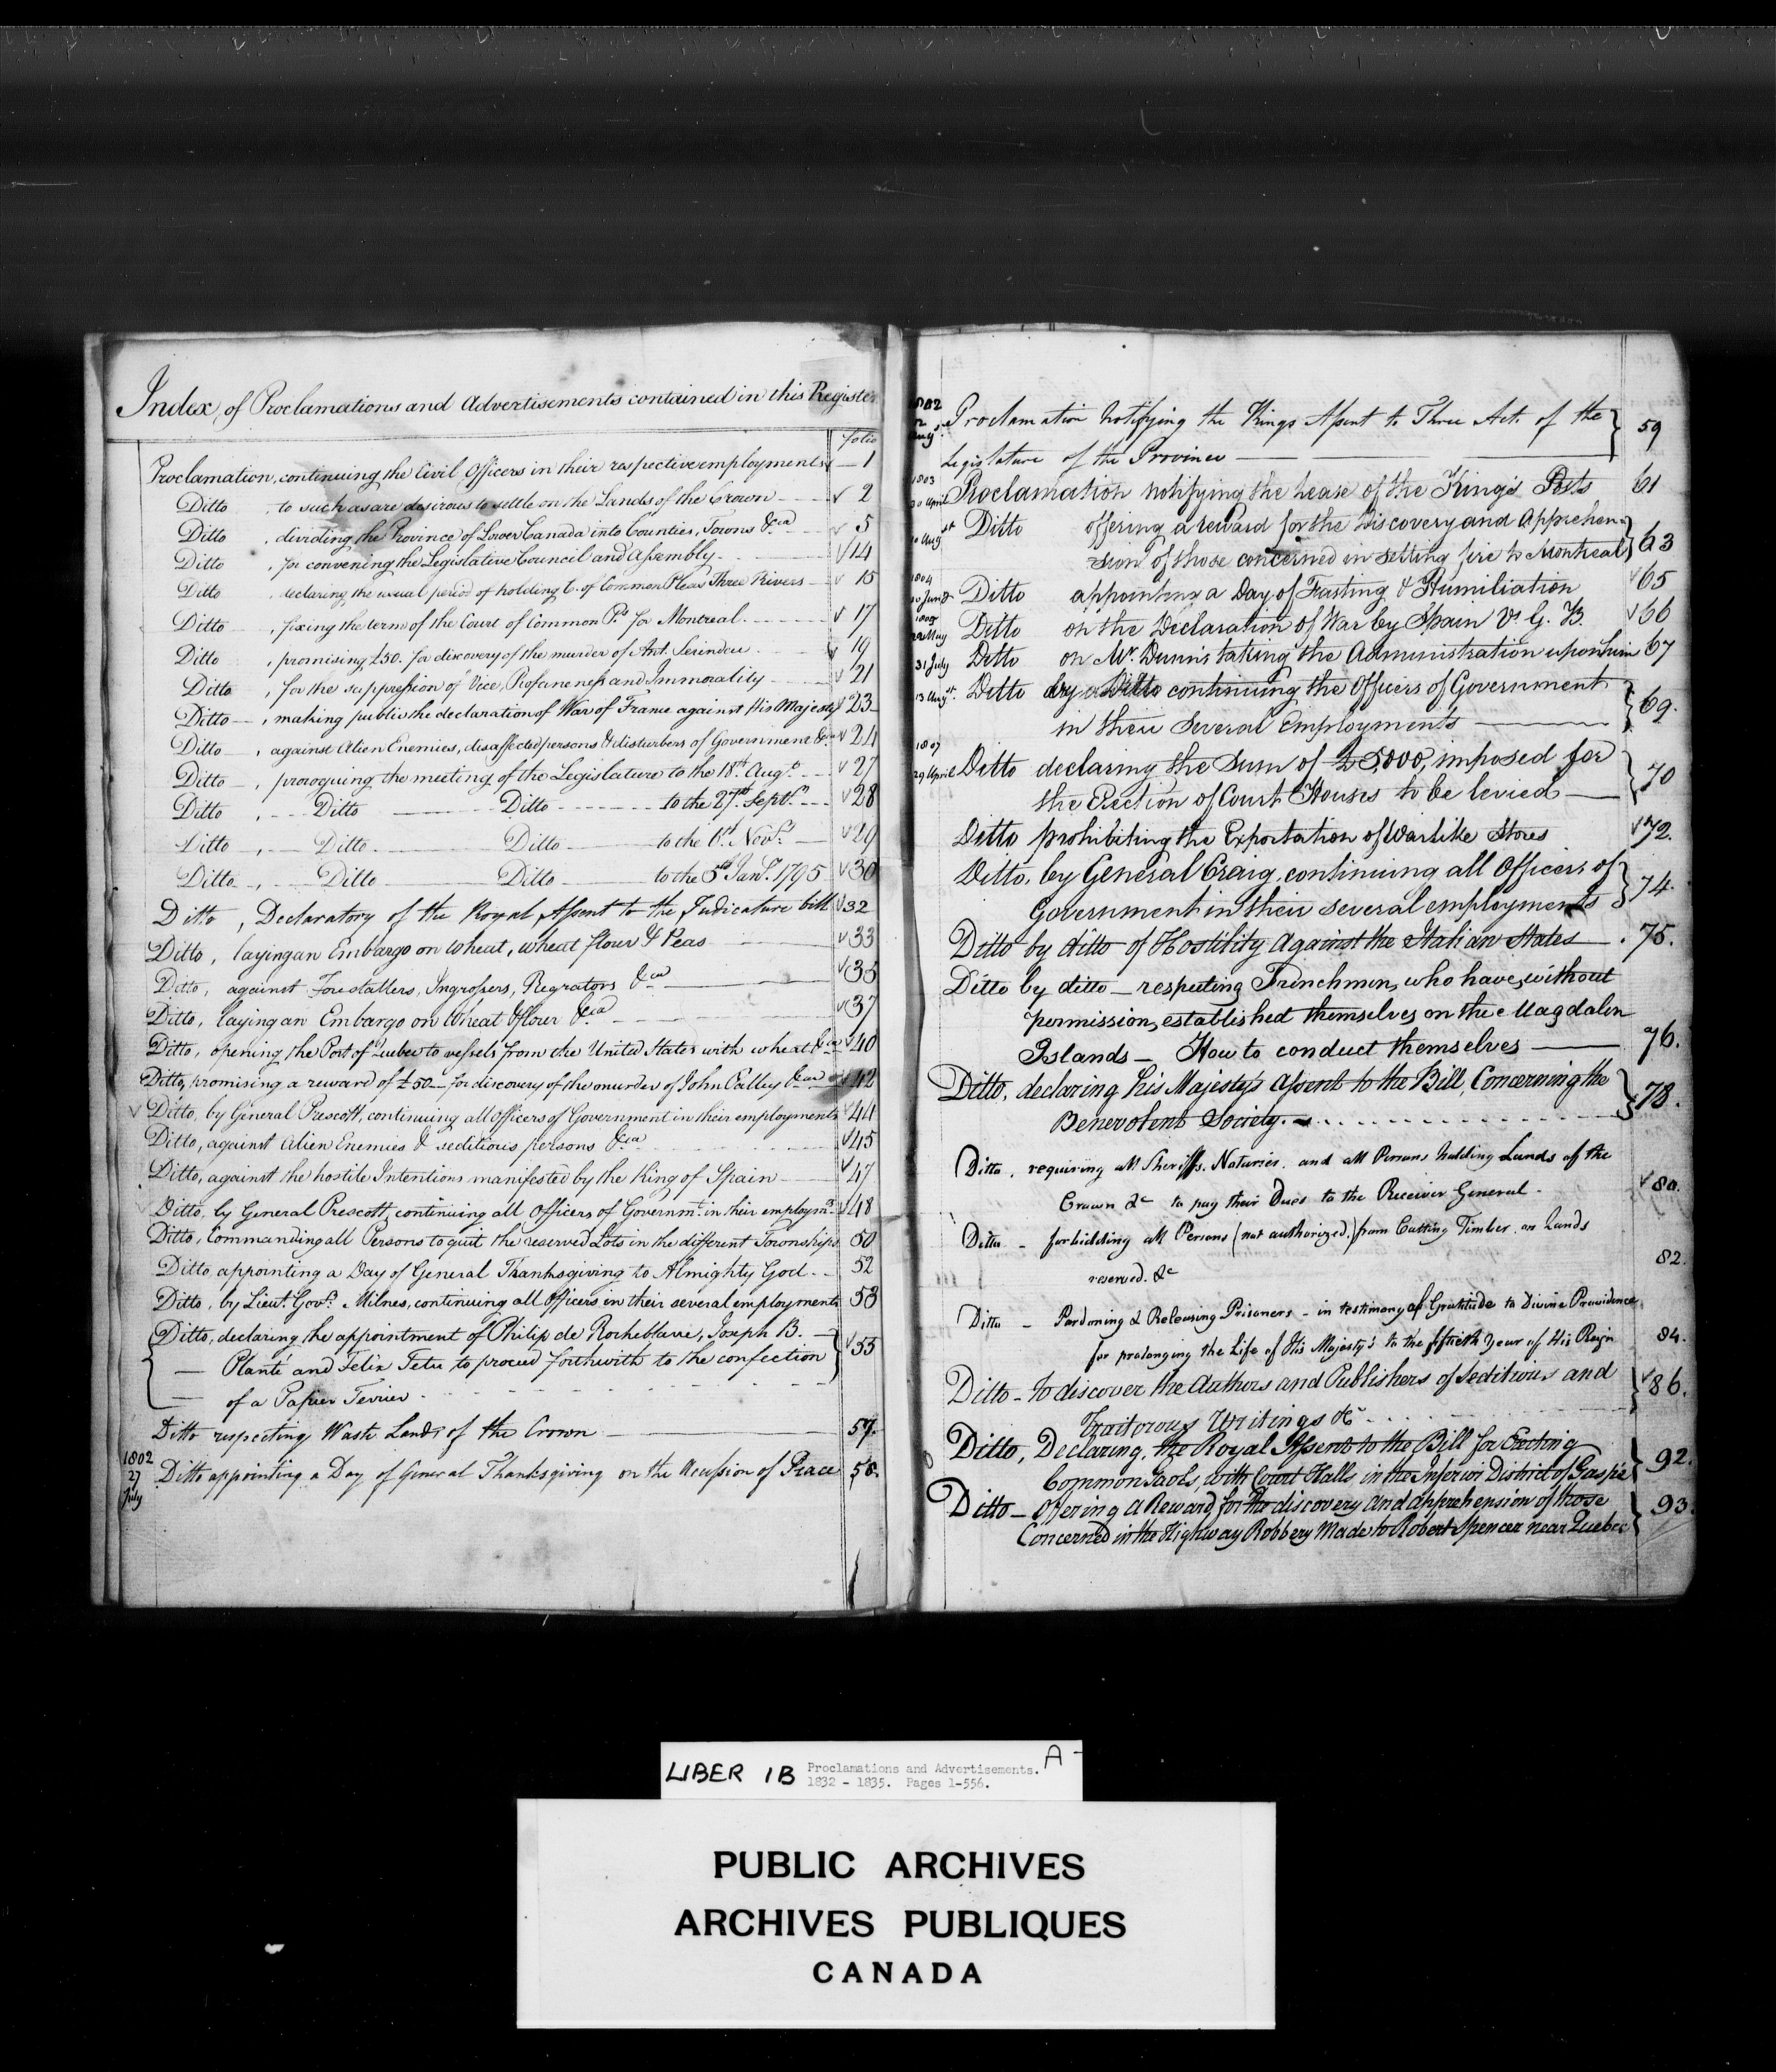 Index, of Proclamations and Advertisements contained in this Register
folio
Proclamation, continuing the Civil Officers in their respective employments — 1
Ditto , to such as are desirous to settle on the Lands of the Crown — √ 2
Ditto , dividing the Province of Lower Canada into Counties, Towns &ca — √ 5
Ditto , for convening the Legislative Council and Assembly — √ 14
Ditto , declaring the usual period of holding C. of Common Pleas Three Rivers — √ 15
Ditto , fixing the term of the Court of Common Ps. for Montreal — √ 17
Ditto , promising £50. for discovery of the murder of Ant. — √ 19
Ditto , for the suppression of Vice, Profaneness and Immorality — √ 21
Ditto — , making public the declaration of War of France against His Majesty √ 23
Ditto — , against Alien Enemies, disaffected persons & disturbers of Government &ca √ 24
Ditto — , proroguing the meeting of the Legislature to the 18th. Augt. — √ 27
Ditto , — Ditto — Ditto — to the 27th. Septr. — √ 28
Ditto , — Ditto — Ditto — to the Novr. — √ 29
Ditto — , — Ditto — Ditto — to the 5th Jany. 1795 √ 30
Ditto , Declaratory of the Royal Assent to the Judicature bill √ 32
Ditto , laying an Embargo on wheat, wheat flour & Peas — √ 33
Ditto , against Forestallers, Ingrossers, Regrators &ca — √ 35
Ditto , laying an Embargo on Wheat & flour &ca — √ 37
Ditto , opening the Port of Quebec to vessels from the United States with wheat &ca √ 40
Ditto, promising a reward of £50 — for discovery of the murder of John Calley &ca √ 42
√ Ditto, by General Prescott, continuing all Officers of Government in their employments √ 44
Ditto, against Alien Enemies & seditious persons &ca √ 45
Ditto, against the hostile Intentions manifested by the King of Spain — √ 47
√ Ditto, by General Prescott, continuing all Officers of Governmt. in their employmts. √ 48
Ditto, Commanding all Persons to quit the reserved Lots in the different Townships 50
Ditto appointing a Day of General Thanksgiving to Almighty God — 52
Ditto, by Lieut. Govr. Milnes, continuing all Officers in their several employments 53
Ditto, declaring the appointment of Philip de Rocheblave, Joseph B. —
— Planté and Felix Tetu to proceed forthwith to the confection √ 55
— of a Papier Terrier
Ditto respecting Waste Lands of the Crown — 57.
1802 27 July Ditto appointing a Day of General Thanksgiving on the Accession of Peace 58.
1802 12 Augst. Proclamation Notifying the Kings Assent to Three Acts of the
Legislature of the Province — 59
1803 30 April Proclamation notifying the lease of the King's Posts 61
10 Augst Ditto offering a reward for the Discovery and Apprehen-
sion of those concerned in setting fire to Montreal 63
1804 Ditto appointing a Day of Fasting & Humiliation √ 65
1805 22 May Ditto on the Declaration of War by Spain Vs. G. B. √ 66
31 July Ditto on Mr. Dunn's taking the Administration upon him 67
13 Augst. Ditto by Ditto continuing the Officers of Government
in their Several Employments — 69.
1807 29 April Ditto declaring the Sum of £5,000, imposed for
the Erection of Court Houses to be levied — 70
Ditto prohibiting the Exportation of Warlike Stores √ 72.
Ditto, by General Craig, continuing all Officers of
Government in their several employments 74.
Ditto by ditto of Hostility against the Italian States — . 75.
Ditto by ditto — respecting Frenchmen, who have, without
permission, established themselves on the Magdalen
Islands — How to conduct themselves — 76.
Ditto, declaring his Majesty's assent to the Bill, Concerning the
Benevolent Society. — 78.
Ditto, requiring all Sheriffs, Notaries, and all Persons holding Lands of the
Crown &c to pay their Dues to the Receiver General — √ 80.
Ditto — forbidding all Persons (not authorized,) from Cutting Timber on Lands
reserved. &c 82.
Ditto — Pardoning & Releasing Prisoners — in testimony of Gratitude to Divine Providence
for prolonging the Life of His Majesty's to the fiftieth Year of His Reign 84.
Ditto — to discover the Authors and Publishers of seditious and
Traitorous Writings &c — √ 86.
Ditto, Declaring, the Royal Assent to the Bill for Erecting
Common Gaols, with Court Halls in the Inferior District of Gaspé 92.
Ditto — offering a Reward for the discovery and apprehension of those
Concerned in the Highway Robbery Made to Robert Spencer near Quebec 93.
LIBER 1B Proclamations and Advertisements. A-
1832 - 1835. Pages 1-556.
PUBLIC ARCHIVES
ARCHIVES PUBLIQUES
CANADA